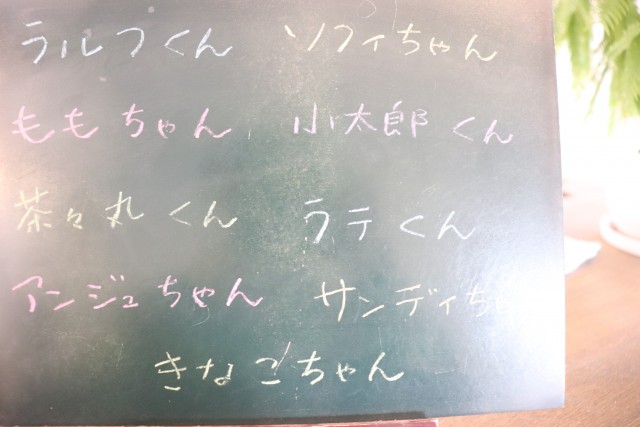 ラルフくん ソフィちゃん
ももちゃん 小太郎くん
茶々丸くん ラテくん
アンジュちゃん サンディち
きなこちゃん